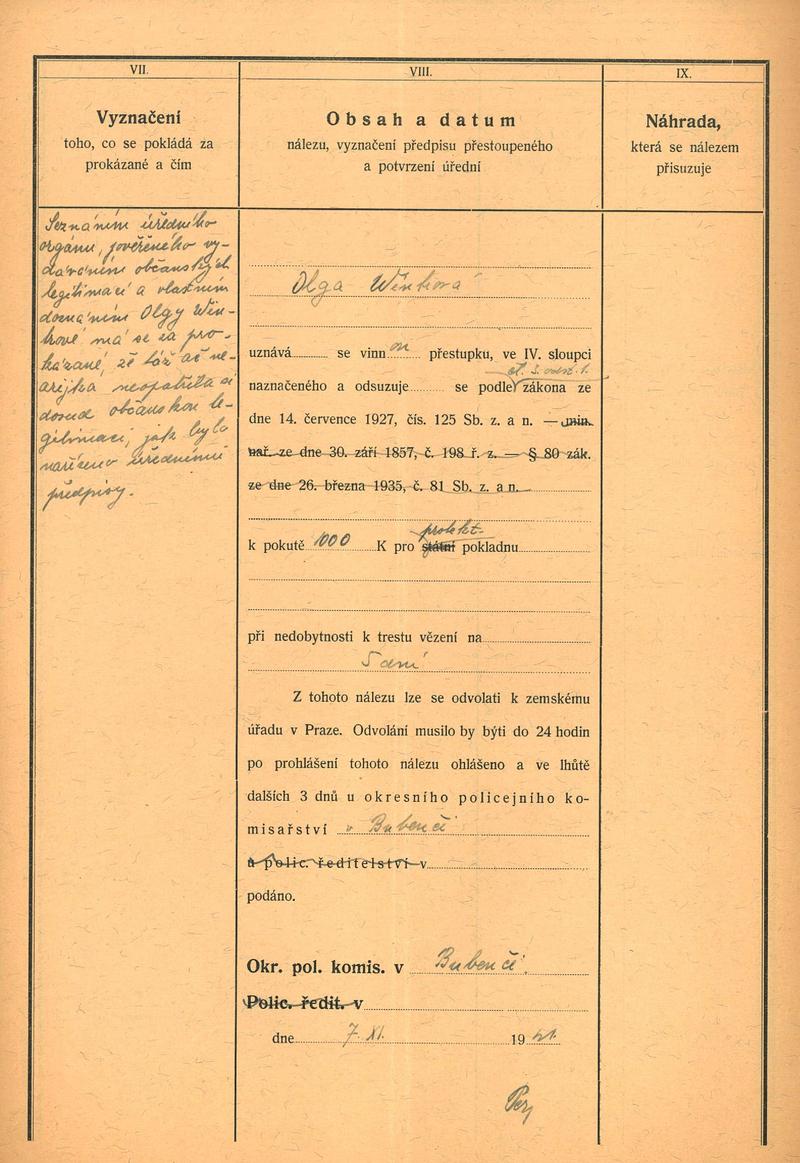 VII.
Vyznačení
toho, co se pokládá za
prokázané a čím
Seznáním úředního
orgánu, pověřeného vy-
dáváním občanských
legitimací a vlastním
doznáním Olgy Win-
kové má se za pro-
kázané, že táž ač ne-
arijka neopatřila si
dosud občanskou le-
gitimaci, jak bylo
nařízeno úředními
předpisy.
VIII.
Obsah a datum
nálezu, vyznačení předpisu přestoupeného
a potvrzení úřední
Olga
uznává se vinnou přestupku, ve IV. sloupci
čl. 3. odst. 1.
naznačeného a odsuzuje se podle zákona ze
dne 14. července 1927, čís. 125 Sb. z. a n. — min.
nař. ze dne 30. září 1857, č. 198 ř. z. — § 80 zák.
ze dne 26. března 1935, č. 81 Sb. z. a n.
protekt.
k pokutě 1000 K pro státní pokladnu
při nedobytnosti k trestu vězení na
5 dní
Z tohoto nálezu lze se odvolati k zemskému
úřadu v Praze. Odvolání musilo by býti do 24 hodin
po prohlášení tohoto nálezu ohlášeno a ve lhůtě
dalších 3 dnů u okresního policejního ko-
misařství v Bubenči
u polic. ředitelství v
podáno.
Okr. pol. komis. v Bubenči
Polic. ředit. v
dne 7. XI. 1941.
IX.
Náhrada,
která se nálezem
přisuzuje